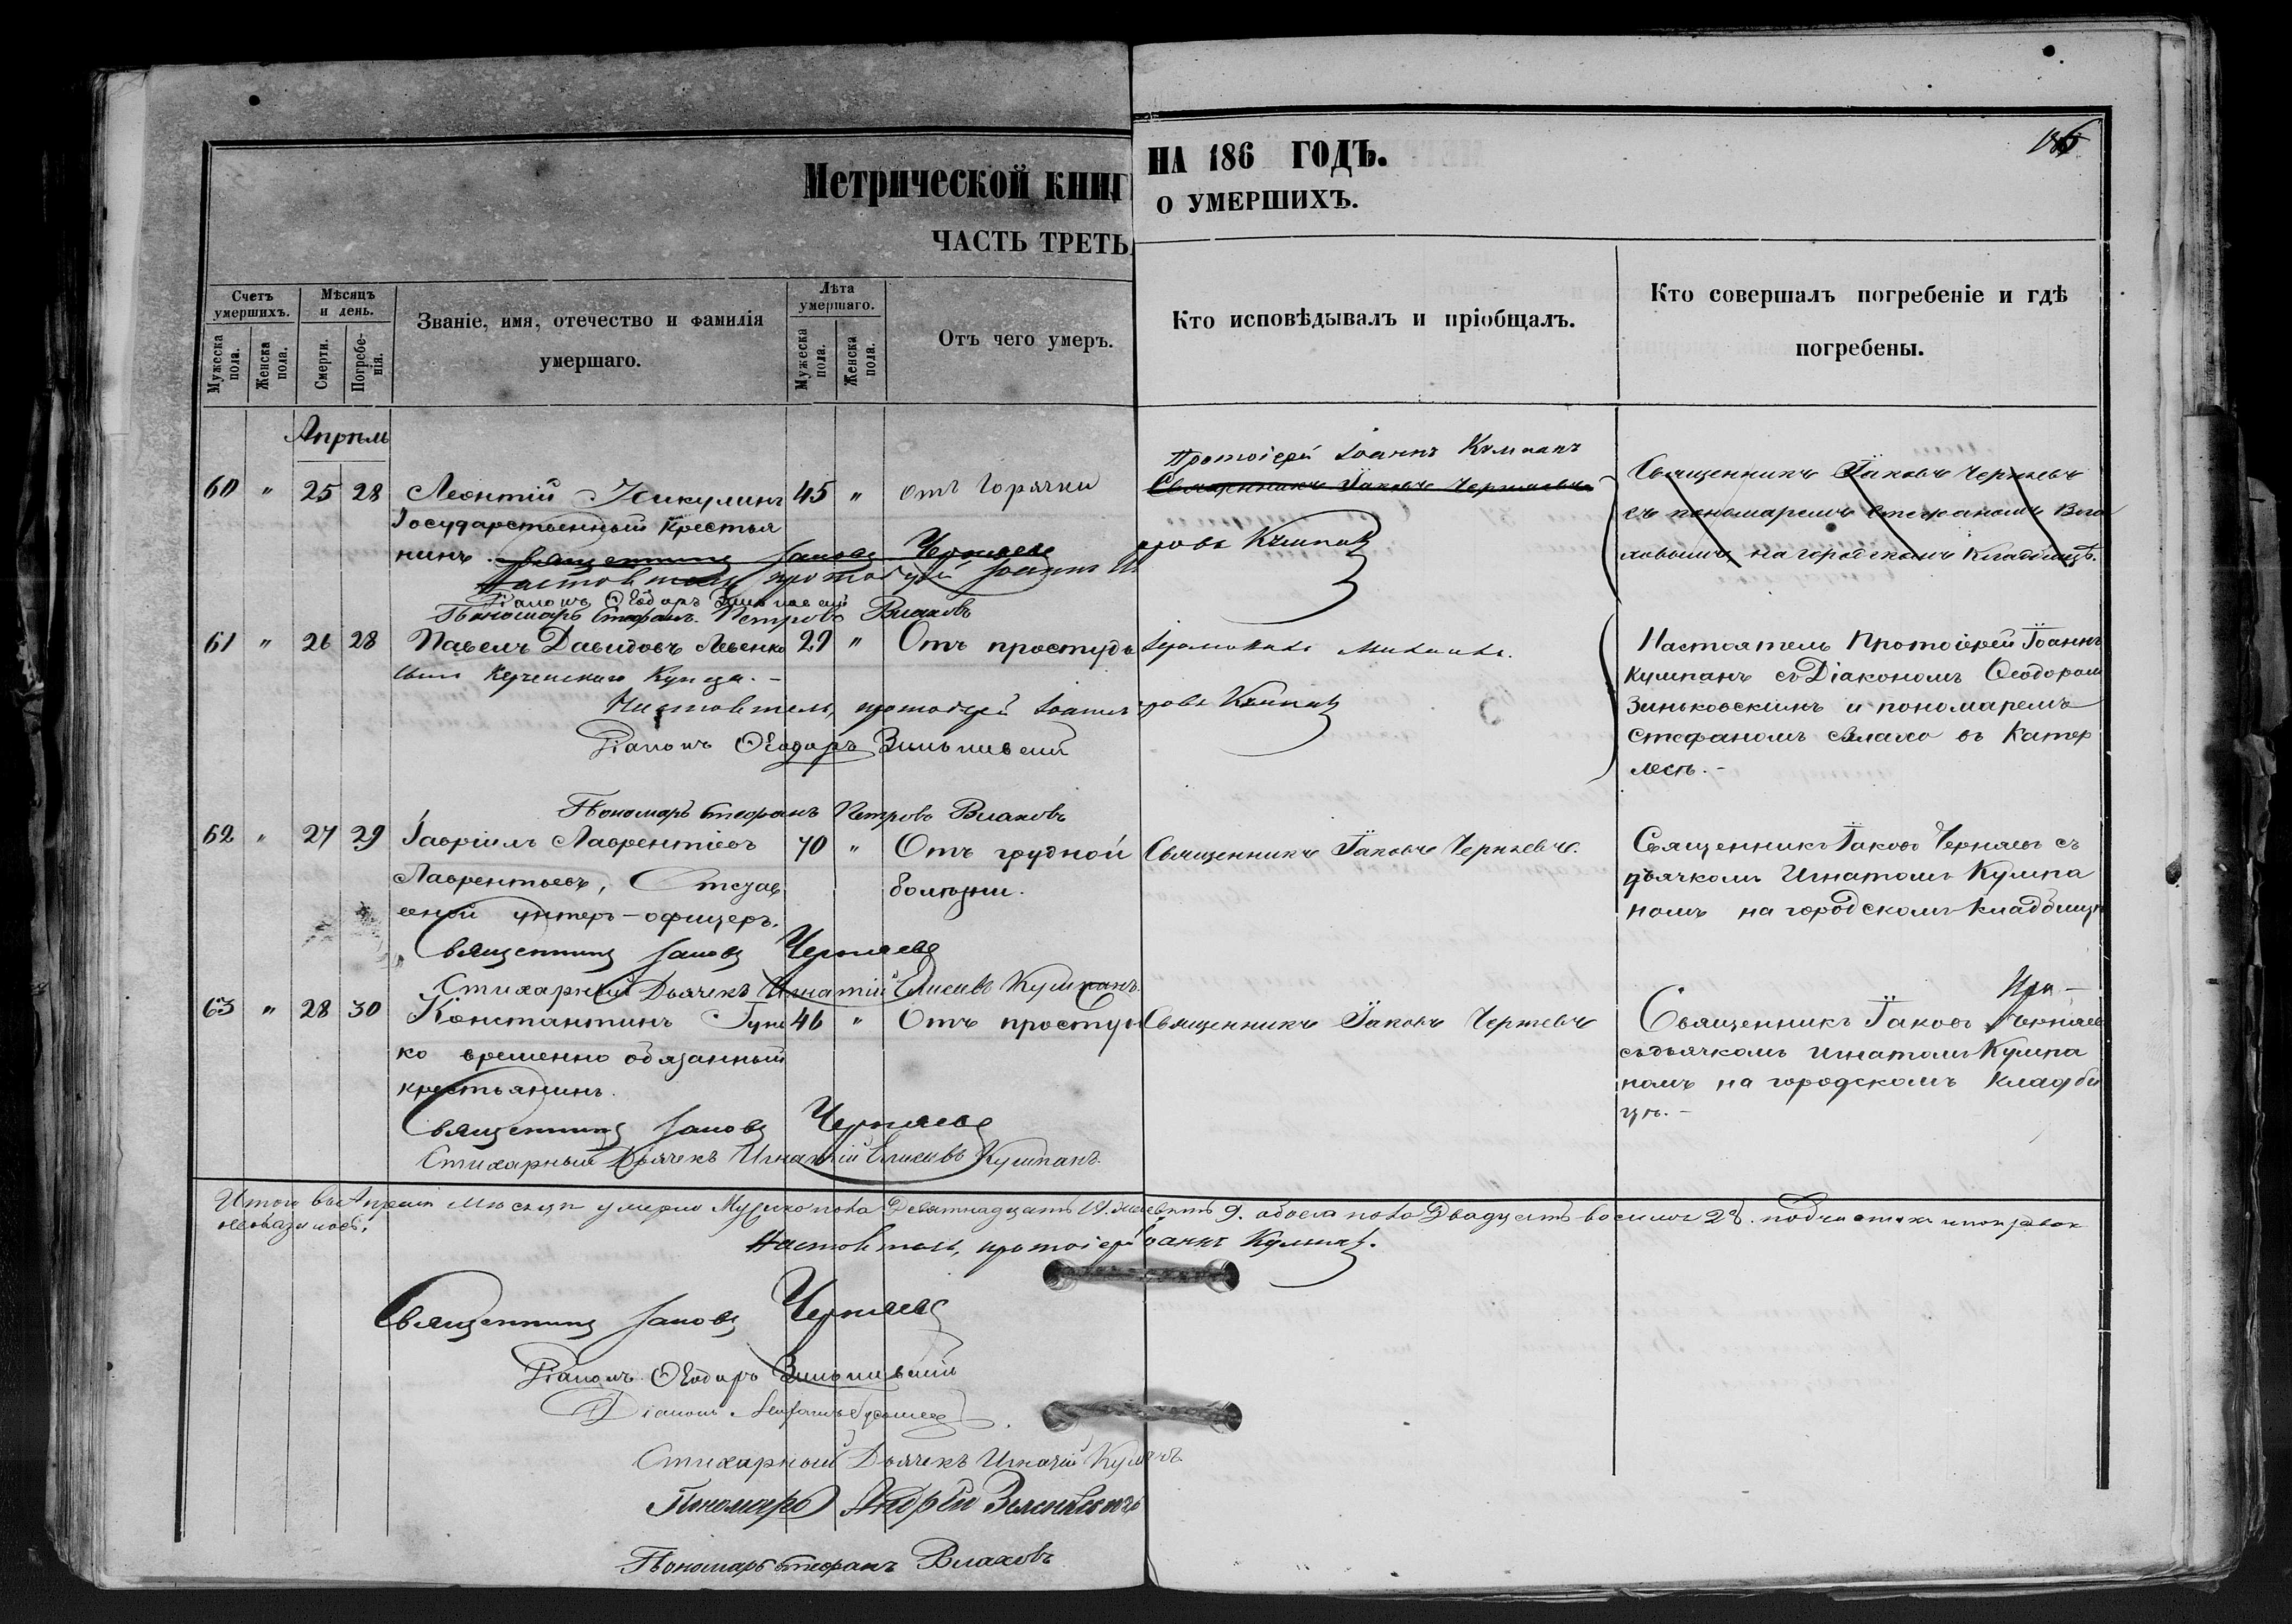 Метрической книг
ЧАСТЬ ТРЕТЬ
НА 186 ГОДЪ.
О УМЕРШИХЪ.
Счетъ умершихъ.
Мужеска пола.
Женска пола.
Мѣсяцъ и день.
Смерти.
Погребенія.
Званіе, имя, отечество и фамилія
умершаго.
Лѣта умершаго.
Мужеска пола.
Женска пола.
Отъ чего умеръ.
Кто исповѣдывалъ и пріобщалъ.
Кто совершалъ погребеніе и гдѣ
погребены.
Апрѣль
60 " 25 28 Леонтій Никулинъ 45 " отъ горячки
Государственный крестья
нинъ. Священникъ Іаковъ Черняевъ
Настоятель протоіерей Іоаннъ
Діаконъ Ѳеодоръ Зиньковскій
Пономарь Стефанъ Петровъ Влаховъ
Протоіерей Іоаннъ Кумпанъ
Священникъ Іаковъ Черняевъ
Священникъ Іаковъ Черняевъ
съ пономаремъ Стефаномъ Вла
ховымъ, на городскомъ кладбищѣ.
61 " 26 28 Павелъ Давидовъ Левенко 29 " Отъ простуды
сынъ Керченскаго купца. -
Настоятель, протоіерей Іоаннъ Кумпанъ
Діаконъ Ѳеодоръ Зиньковскій
Пономарь Стефанъ Петровъ Влаховъ
Настоятель Протоіерей Іоаннъ
Кумпанъ съ Діакономъ Ѳеодоромъ
Зиньковскимъ и пономаремъ
Стефаномъ Влахо въ Катер
лесѣ. -
62 " 27 29 Гавріилъ Лаврентіевъ 70 " Отъ грудной
Лаврентьевъ, Отстав
ной унтеръ-офицеръ.
болѣзни.
Священникъ Іаковъ Черняевъ
Стихарный Дьячекъ Игнатій Елисеевъ Кумпанъ.
Священникъ Іаковъ Черняевъ.
Священникъ Іаковъ Черняевъ съ
дьячкомъ Игнатомъ Кумпа
номъ на городскомъ кладбищѣ
63 " 28 30 Константинъ Гуне 46 " Отъ простуды
ко временно обязанный
крестьянинъ.
Священникъ Іаковъ Черняевъ
Стихарный Дьячекъ Игнатій Елисеевъ Кумпанъ.
Священникъ Іаковъ Черняевъ
Священникъ Іаковъ Черняев
съ дьячкомъ Игнатомъ Кумпа
номъ на городскомъ кладби
щѣ. -
Итого въ Апрѣлѣ мѣсяцѣ умерло Мужеска пола Девятнадцать 19. женска 9. обоего пола Двадцать восемь 28. подчистки и поправок
неоказалось.
Настоятель, протоіерей Іоаннъ Кумпанъ.
Священникъ Іаковъ Черняевъ
Діаконъ Ѳеодоръ Зиньковскій
Діаконъ
Стихарный Дьячекъ Игнатій Кумпанъ
Пономарь Андрей
Пономарь Стефанъ Влаховъ